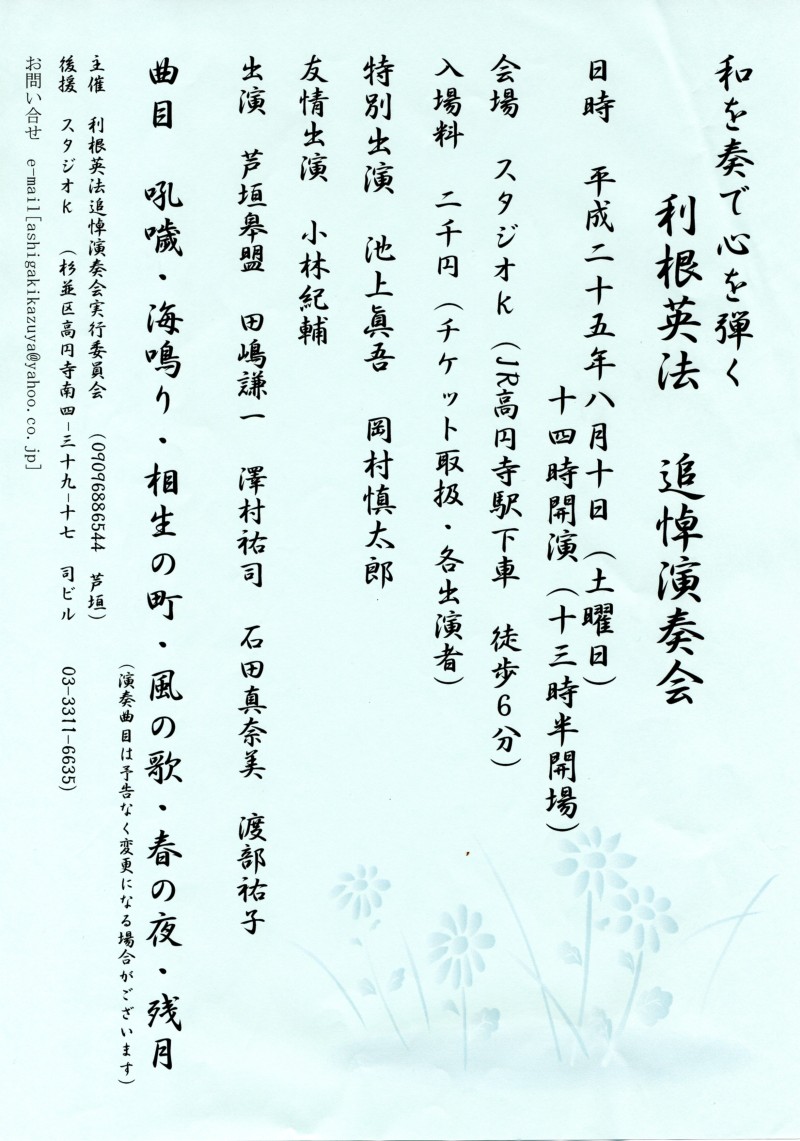 和を奏で心を弾く
利根英法　追悼演奏会
日時　平成二十五年八月十日（土曜日）
十四時開演（十三時半開場）
会場　スタジオK（JR高円寺駅下車　徒歩6分）
入場料　二千円（チケット取扱・各出演者）
特別出演　池上眞吾　岡村慎太郎
友情出演　小林紀輔
出演　芦垣皋盟　田嶋謙一　澤村祐司　石田真奈美　渡部祐子
曲目　吼噦・海鳴り・相生の町・風の歌・春の夜・残月
（演奏曲目は予告なく変更になる場合がございます）
主催　利根英法追悼演奏会実行委員会　（09096886544　芦垣）
後援　スタジオK　（杉並区高円寺南四−三十九−十七　司ビル　03-3311-6635）
お問い合せ　e-mail[ashigakikazuya@yahoo.co.jp]